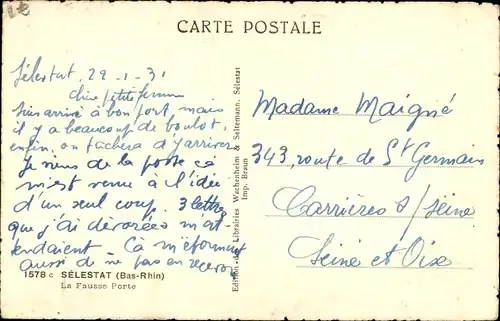 CARTE POSTALE
Sélestat, 29-1-31
Chère petite femme
Suis arrivé à bon port, mais
il y a beaucoup de boulot,
enfin, on tâchera d'y arriver
Je viens de la poste ça
m'est venu à l'idée
d'un seul coup. 3 lettres
que j'ai dévorées m'at-
tendaient. Ça m'étonnait
aussi de ne pas en recevoir
1578 c SÉLESTAT (Bas-Rhin)
La Fausse Porte
Edition des Librairies Wachenheim & Saltzmann, Sélestat
Imp. Braun
Madame Maigné
343, route de St Germain
Carrières s/ Seine
Seine et Oise